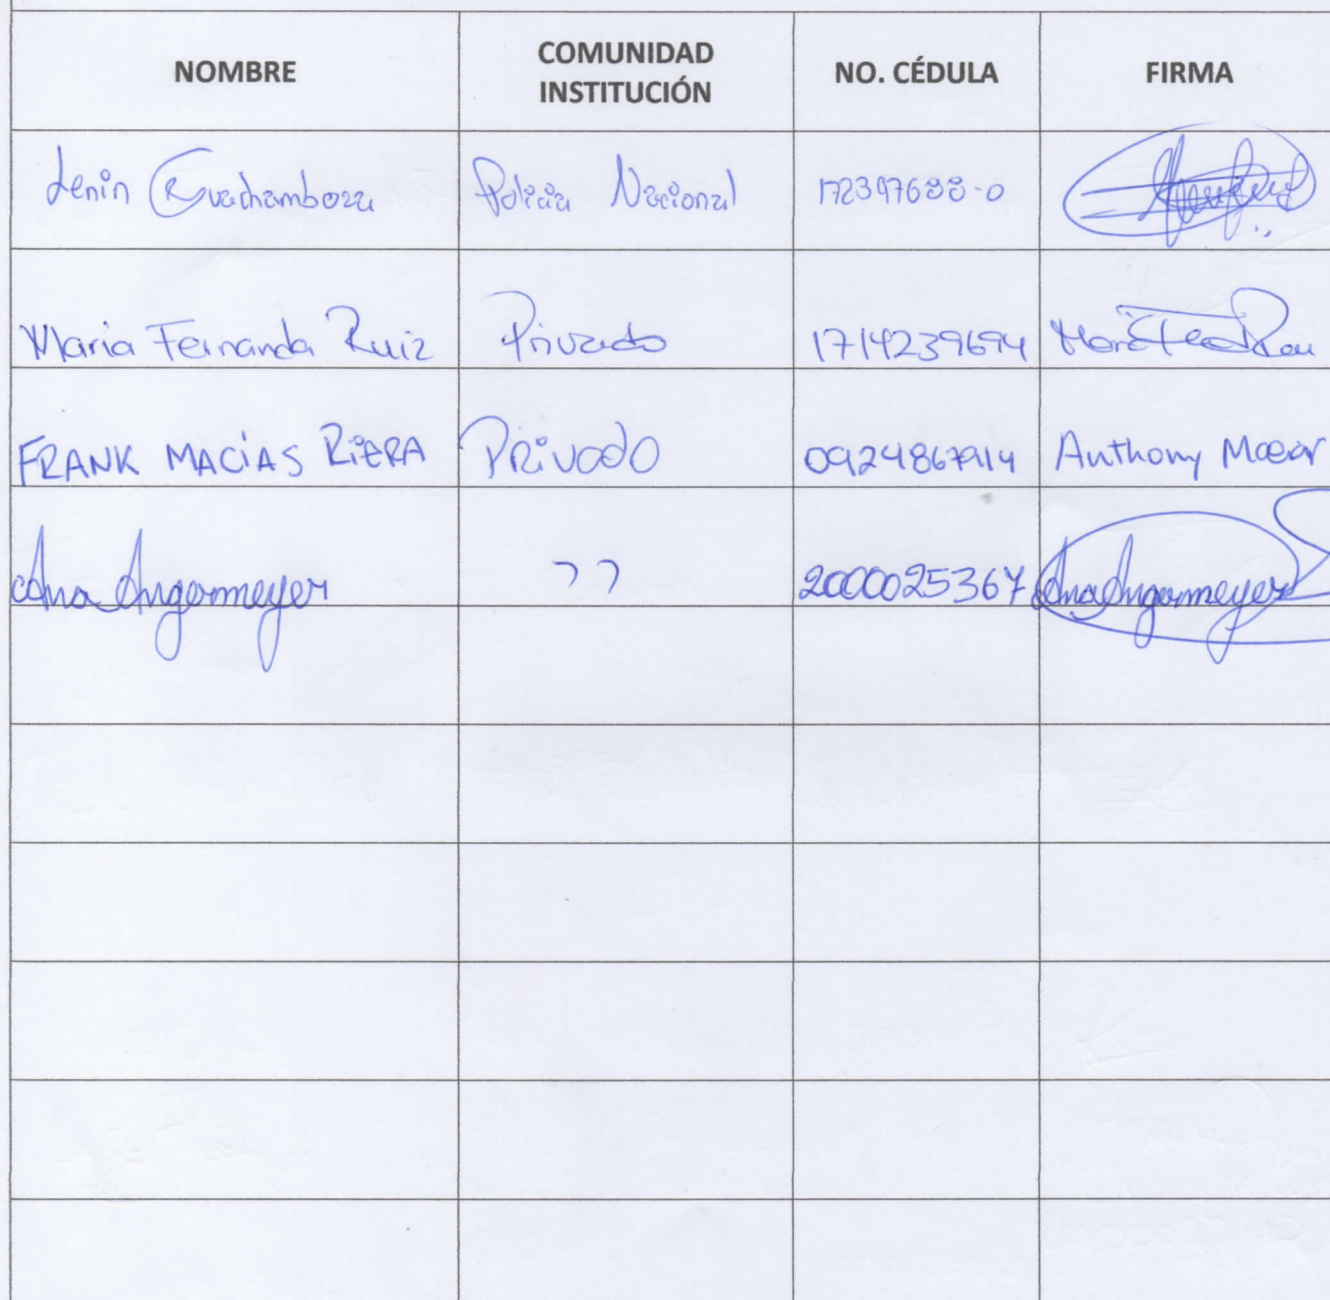 NOMBRE COMUNIDAD INSTITUCIÓN NO. CÉDULA FIRMA
Lenin Guachamboza Policia Nacional 172397688-0
Maria Fernanda Ruiz Privado 1714239694
FRANK MACÍAS RIERA Privado 0924867914 Anthony
Ana Angermeyer " 2000025367 Ana Angermeyer